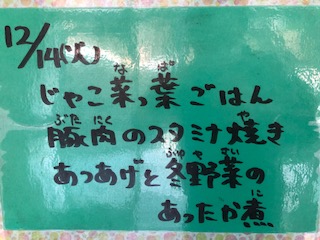 12/14(火)
じゃこ菜っ葉ごはん
豚肉のスタミナ焼き
あつあげと冬野菜の
あったか煮